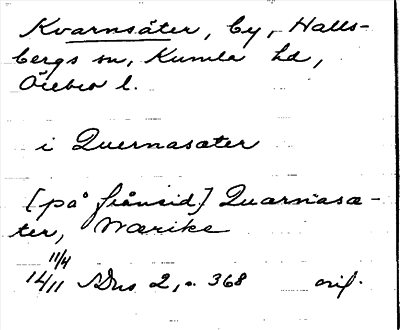 Kvarnsäter, by, Halls-
bergs sn, Kumla hd,
Örebro l.
i Quernasater
[på frånsid.] Quarnasæ-
ter, Nærike
11/4
14/11 SDns 2, s. 368 orig.